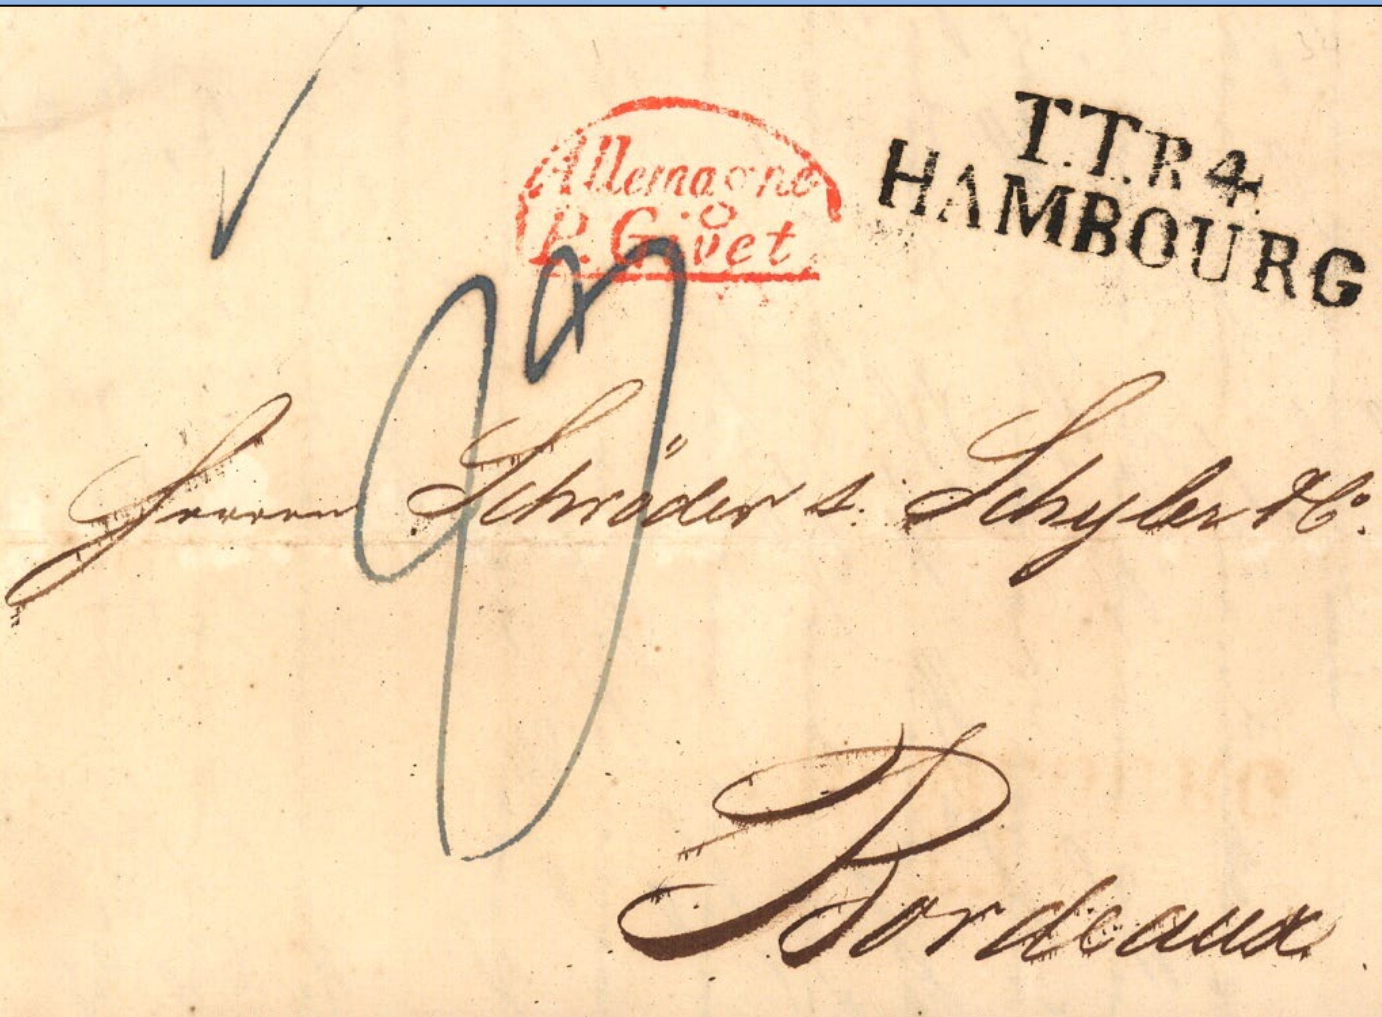 Allemagne
P. Givet
T.T.R 4.
HAMBOURG
Herren Schröder & Schyler & Co.
Bordeaux